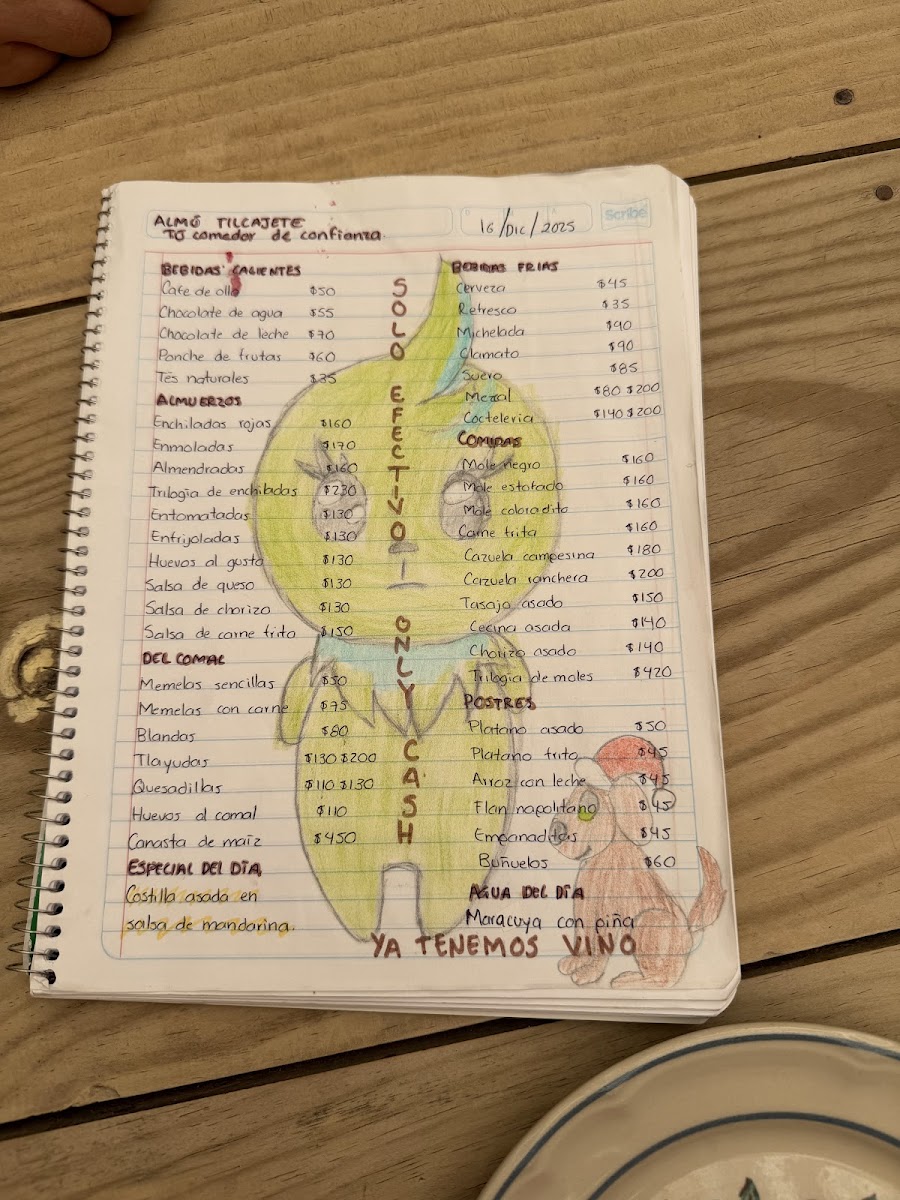 ALMÚ TILCAJETE
TU comedor de confianza.
16/DIC/2025
Scribe
BEBIDAS CALIENTES
Cafe de olla $50
Chocolate de agua $55
Chocolate de leche $70
Ponche de frutas $60
Tés naturales $35
ALMUERZOS
Enchiladas rojas $160
Enmoladas $170
Almendradas $160
Trilogia de enchiladas $230
Entomatadas $130
Enfrijoladas $130
Huevos al gusto $130
Salsa de queso $130
Salsa de chorizo $130
Salsa de carne frita $150
DEL COMAL
Memelas sencillas $50
Memelas con carne $75
Blandas $80
Tlayudas $130 $200
Quesadillas $110 $130
Huevos al comal $110
Canasta de maíz $450
ESPECIAL DEL DÍA
Costilla asada en
salsa de mandarina.
SOLO EFECTIVO - ONLY CASH
BEBIDAS FRIAS
Cerveza $45
Refresco $35
Michelada $90
Clamato $90
Suero $85
Mezcal $80 $200
Cocteleria $140 $200
COMIDAS
Mole negro $160
Mole estofado $160
Mole coloradito $160
Carne frita $160
Cazuela campesina $180
Cazuela ranchera $200
Tasajo asado $150
Cecina asada $140
Chorizo asado $140
Trilogia de moles $420
POSTRES
Platano asado $50
Platano frito $45
Arroz con leche $45
Flan napolitano $45
Empanaditas $45
Buñuelos $60
AGUA DEL DÍA
Maracuya con piña
YA TENEMOS VINO